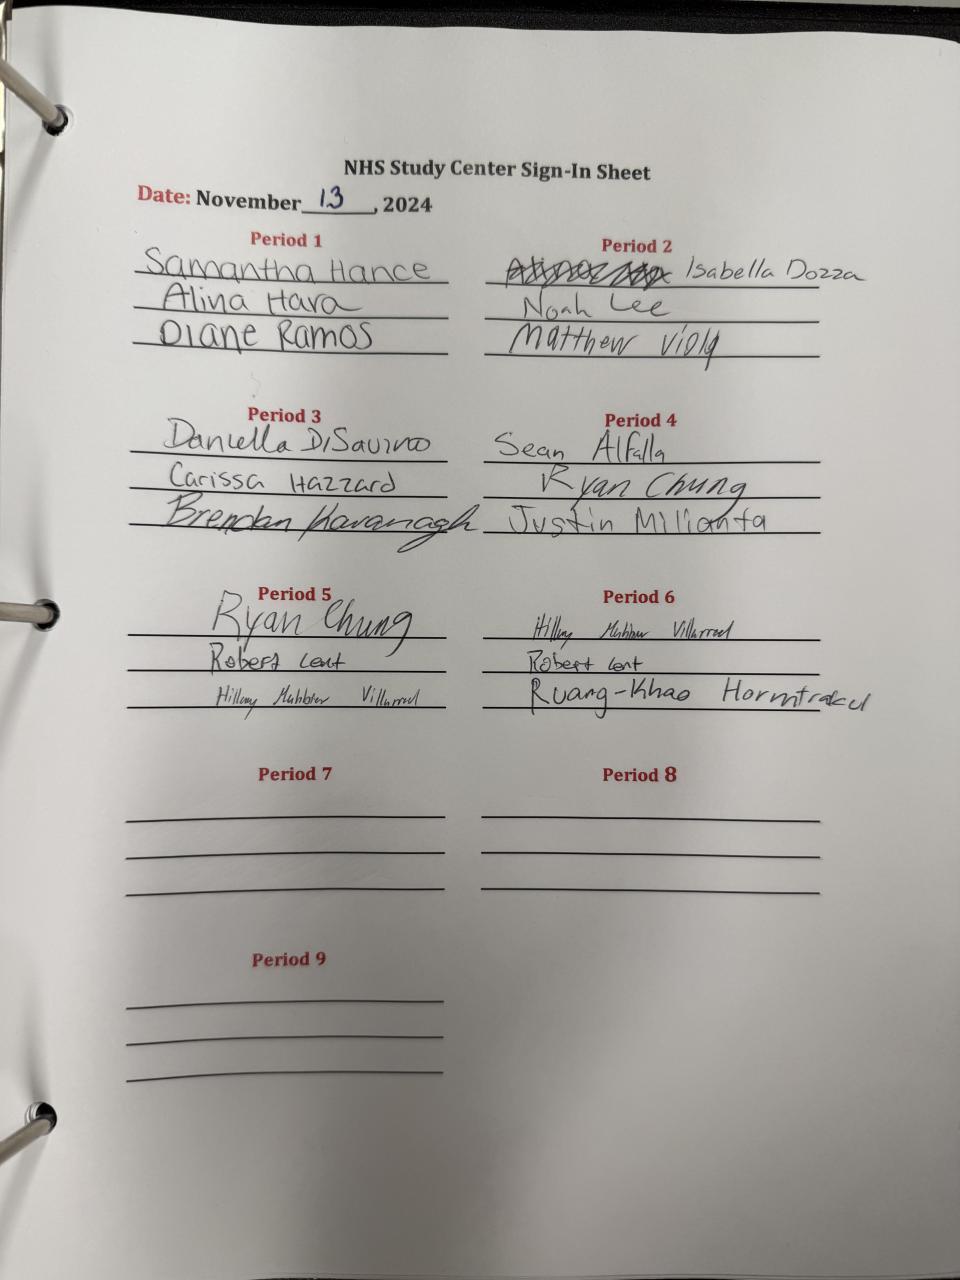 NHS Study Center Sign-In Sheet
Date: November 13, 2024
Period 1
Samantha Hance
Alina Hara
Diane Ramos
Period 2
Isabella Dozza
Noah Lee
Matthew Viola
Period 3
Daniella DiSavino
Carissa Hazzard
Brendan Kavanagh
Period 4
Sean Alfalla
Ryan Chung
Justin Milianta
Period 5
Ryan Chung
Robert Lent
Hillary Villarreal
Period 6
Hillary Villarreal
Robert Lent
Ruang-Khao Hormtrakul
Period 7
Period 8
Period 9